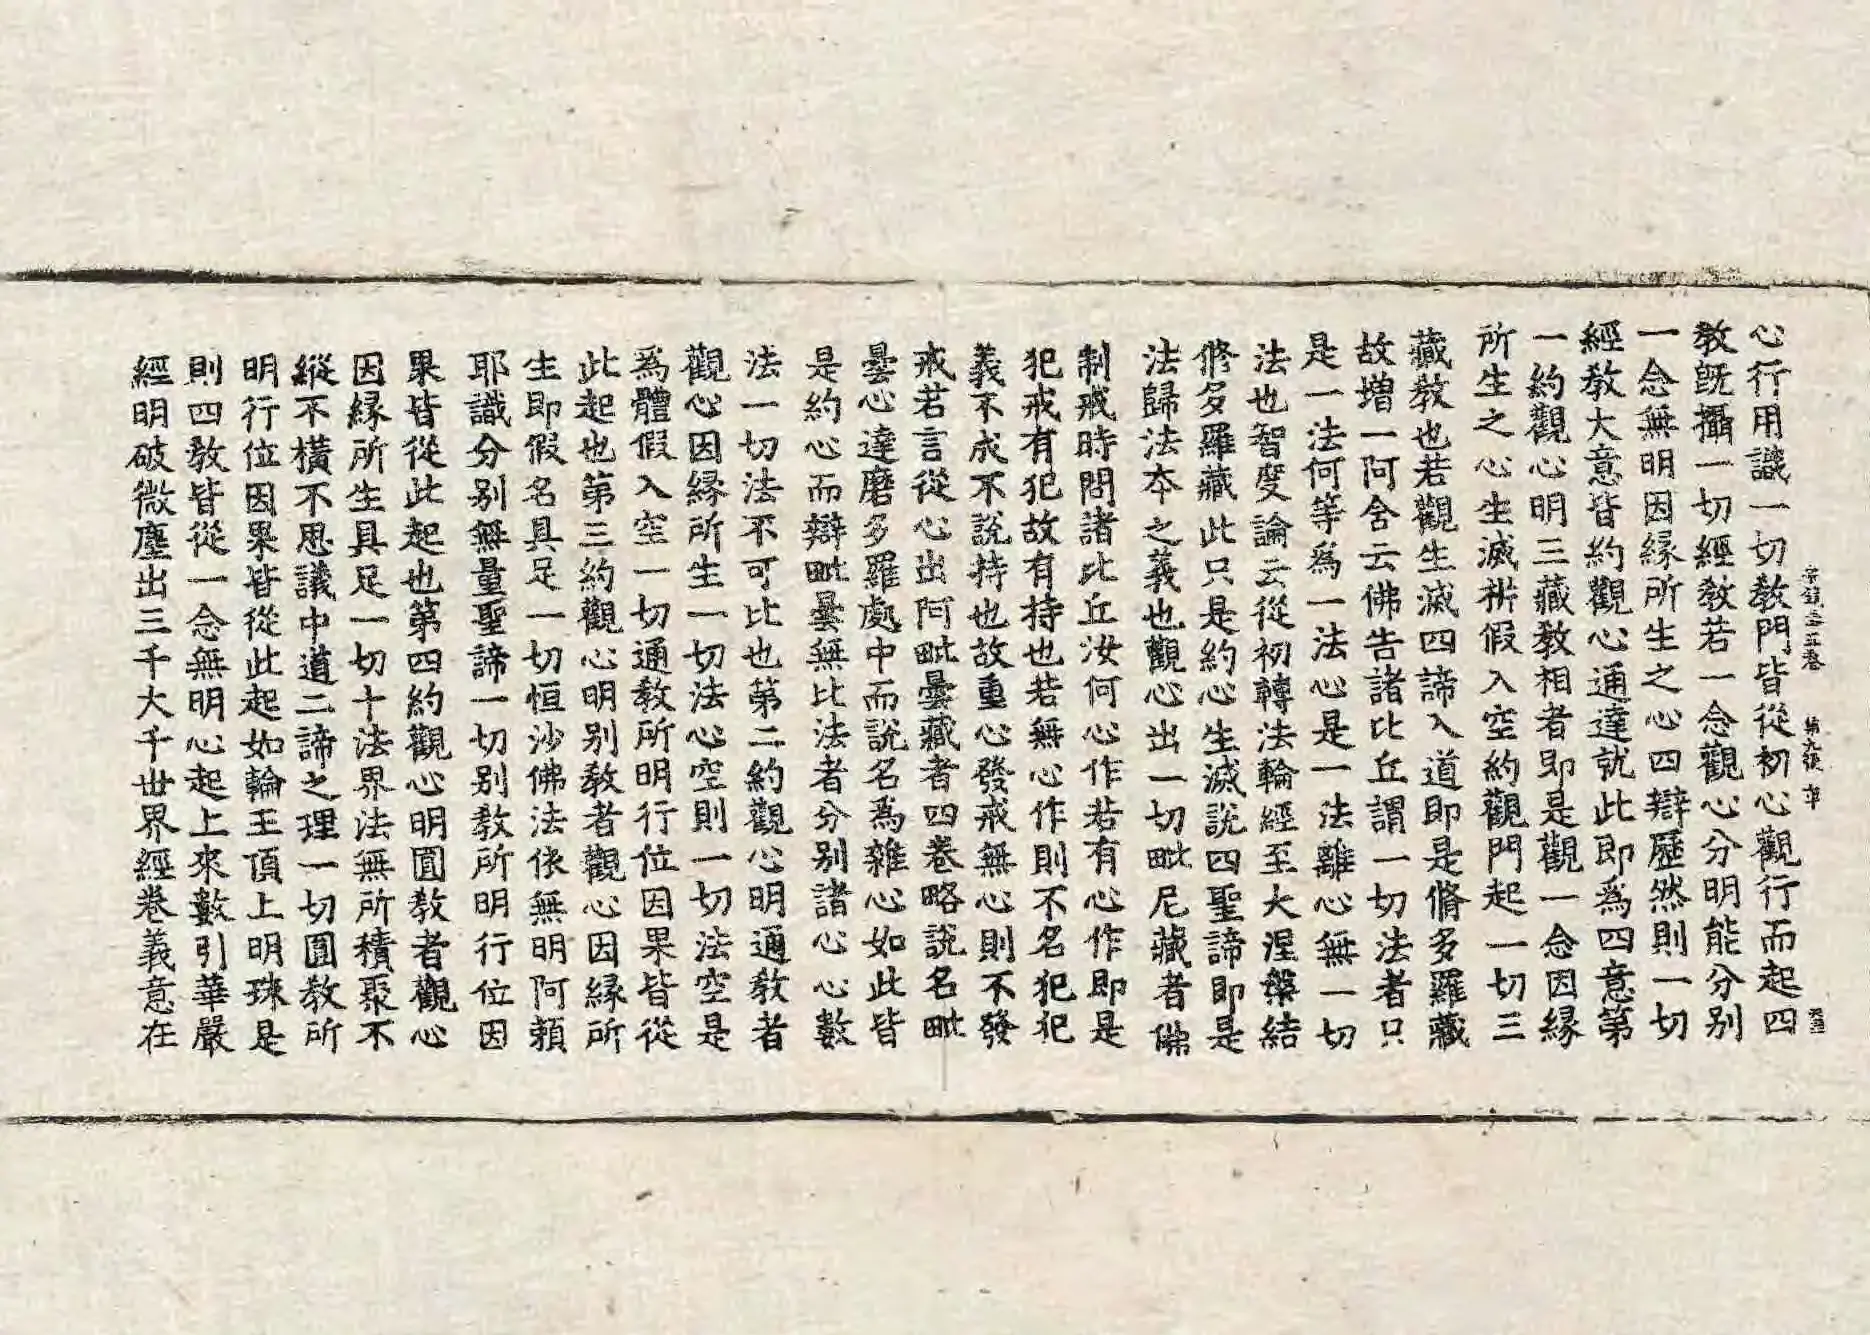 宗鏡 第九張
心行用識一切教門皆從初心觀行而起四
教旣攝一切經教若一念觀心分明能分別
一念無明因縁所生之心四辯歷然則一切
經教大意皆約觀心通達就此即爲四意第
一約觀心明三藏教相者即是觀一念因縁
所生之心生滅㭊假入空約觀門起一切三
藏教也若觀生滅四諦入道即是脩多羅藏
故增一阿含云佛告諸比丘謂一切法者只
是一法何等爲一法心是一法離心無一切
法也智度論云從初轉法輪經至大涅槃結
修多羅藏此只是約心生滅說四聖諦即是
法歸法夲之義也觀心出一切毗尼藏者佛
制戒時問諸比丘汝何心作若有心作即是
犯戒有犯故有持也若無心作則不名犯犯
義不成不說持也故重心發戒無心則不發
戒若言從心出阿毗曇藏者四卷略說名毗
曇心達磨多羅處中而說名爲雜心如此皆
是約心而辯毗曇無比法者分别諸心心數
法一切法不可比也第二約觀心明通教者
觀心因縁所生一切法心空則一切法空是
爲體假入空一切通教所明行位因果皆從
此起也第三約觀心明别教者觀心因縁所
生即假名具足一切恒沙佛法依無明阿賴
耶識分别無量聖諦一切别教所明行位因
果皆從此起也第四約觀心明圓教者觀心
因縁所生具足一切十法界法無所積聚不
縱不橫不思議中道二諦之理一切圓教所
明行位因果皆從此起如輪王頂上明珠是
則四教皆從一念無明心起上來數引華嚴
經明破微塵出三千大千世界經卷義意在